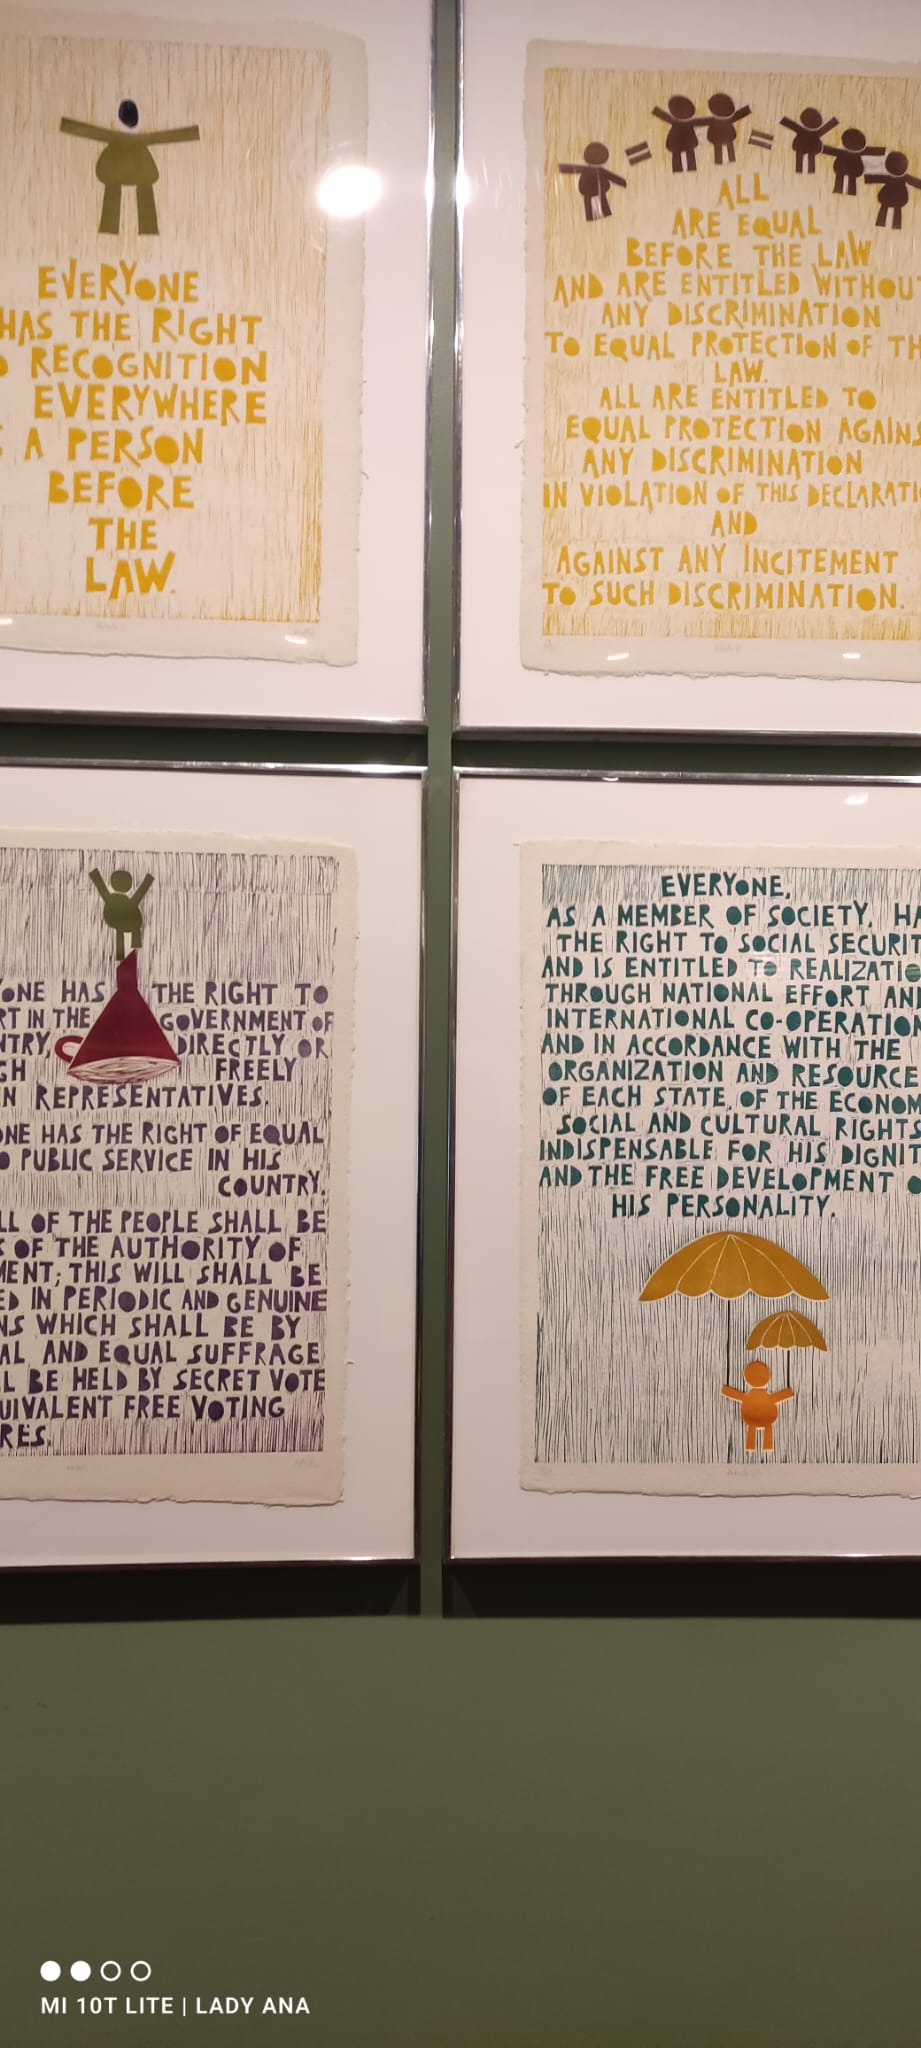 EVERYONE
HAS THE RIGHT
RECOGNITION
EVERYWHERE
A PERSON
BEFORE
THE
LAW.
ALL
ARE EQUAL
BEFORE THE LAW
AND ARE ENTITLED WITHOU
ANY DISCRIMINATION
TO EQUAL PROTECTION OF TH
LAW.
ALL ARE ENTITLED TO
EQUAL PROTECTION AGAINS
ANY DISCRIMINATION
IN VIOLATION OF THIS DECLARATI
AND
AGAINST ANY INCITEMENT
TO SUCH DISCRIMINATION.
YONE HAS THE RIGHT TO
RT IN THE GOVERNMENT OF
NTRY, DIRECTLY OR
GH FREELY
N REPRESENTATIVES.
ONE HAS THE RIGHT OF EQUAL
O PUBLIC SERVICE IN HIS
COUNTRY.
LL OF THE PEOPLE SHALL BE
S OF THE AUTHORITY OF
MENT; THIS WILL SHALL BE
ED IN PERIODIC AND GENUINE
NS WHICH SHALL BE BY
AL AND EQUAL SUFFRAGE
L BE HELD BY SECRET VOTE
UIVALENT FREE VOTING
RES.
EVERYONE,
AS A MEMBER OF SOCIETY, HA
THE RIGHT TO SOCIAL SECURIT
AND IS ENTITLED TO REALIZATIO
THROUGH NATIONAL EFFORT AN
INTERNATIONAL CO-OPERATION
AND IN ACCORDANCE WITH THE
ORGANIZATION AND RESOURCE
OF EACH STATE, OF THE ECONOM
SOCIAL AND CULTURAL RIGHTS
INDISPENSABLE FOR HIS DIGNIT
AND THE FREE DEVELOPMENT O
HIS PERSONALITY.
MI 10T LITE | LADY ANA